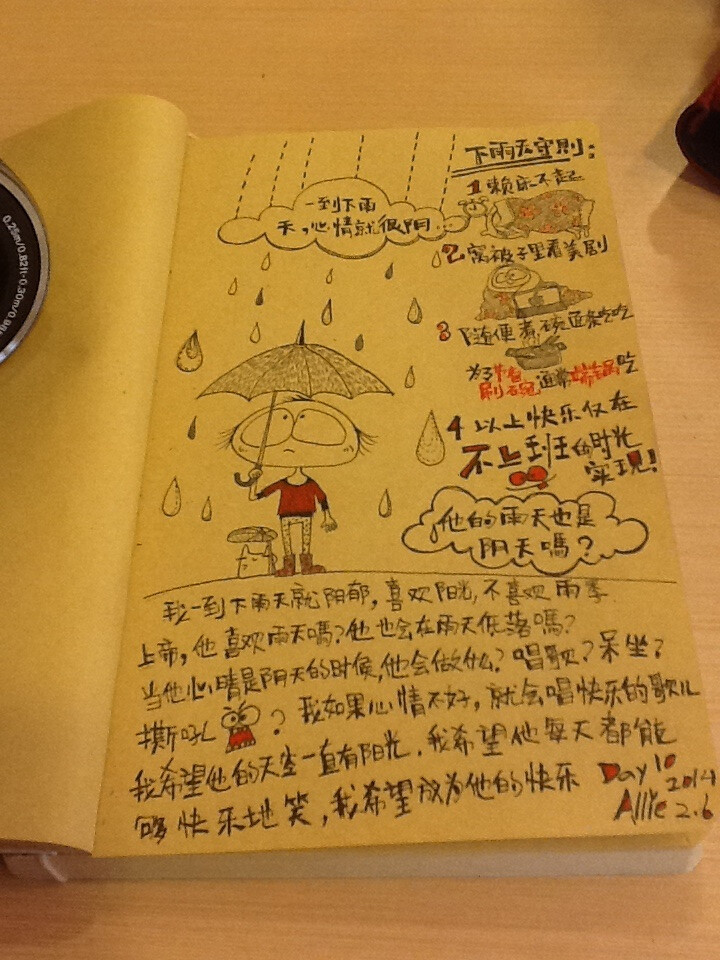 0.26m/0.82ft-0.30m/0.98
一到下雨
天,心情就很阴..
下雨天守則:
1 赖床不起
2 窝被子里看美剧
3 随便煮碗面来吃吃
为了节省
刷碗 通常端锅吃
4 以上快乐仅在
不上班的时光
实现!
他的雨天也是
阴天嗎?
我一到下雨天就阴郁,喜欢阳光,不喜欢雨季.
上帝,他喜欢雨天嗎?他也会在雨天低落嗎?
当他心晴是阴天的时候,他会做什么?唱歌?呆坐?
撕吼 ? 我如果心情不好,就会唱快乐的歌儿
我希望他的天空一直有阳光.我希望他每天都能
够快乐地笑,我希望成为他的快乐
Day 10
2014
Allie 2.6